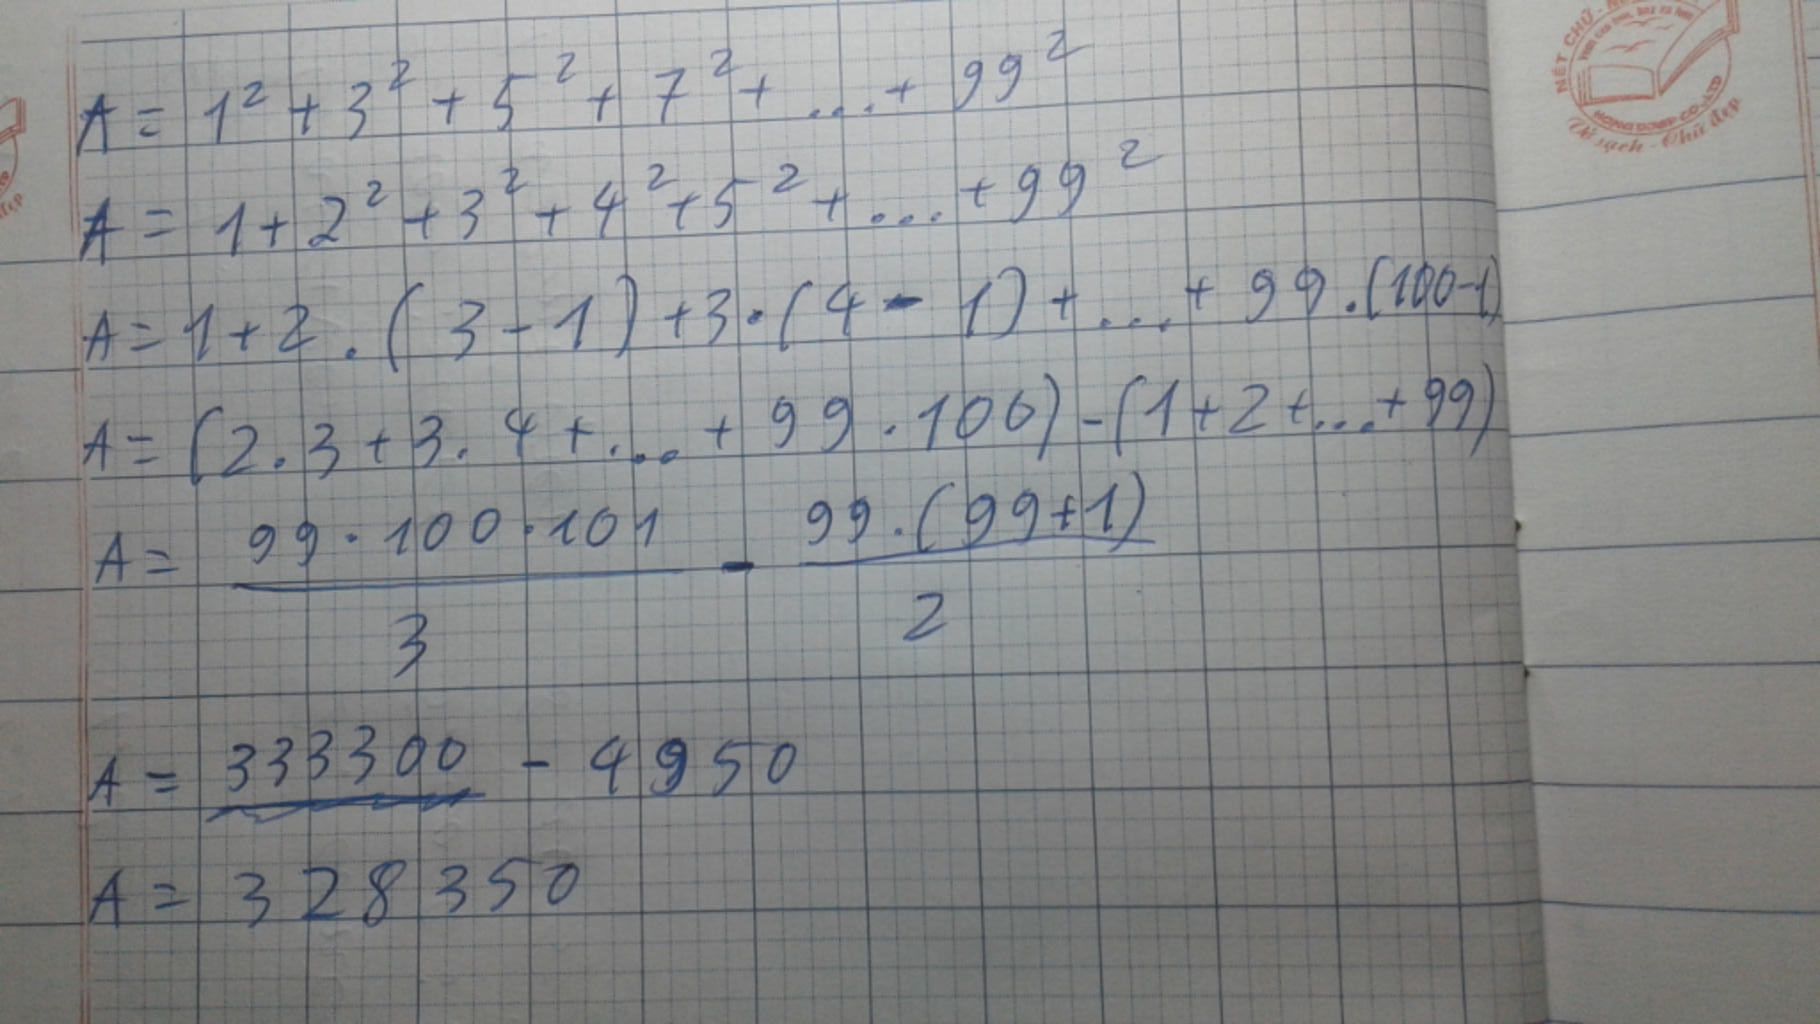 A = 1² + 3² + 5² + 7² + ... + 99²
A = 1 + 2² + 3² + 4² + 5² + ... + 99²
A = 1 + 2 . ( 3 - 1 ) + 3 . ( 4 - 1 ) + ... + 99 . (100-1)
A = (2 . 3 + 3 . 4 + ... + 99 . 100) - (1 + 2 + ... + 99)
A = 99 . 100 . 101 / 3 - 99 . (99+1) / 2
A = 333300 - 4950
A = 328350
NÉT CHỮ - 
HONG DUMP CO., LTD
Vở sạch - Chữ đẹp